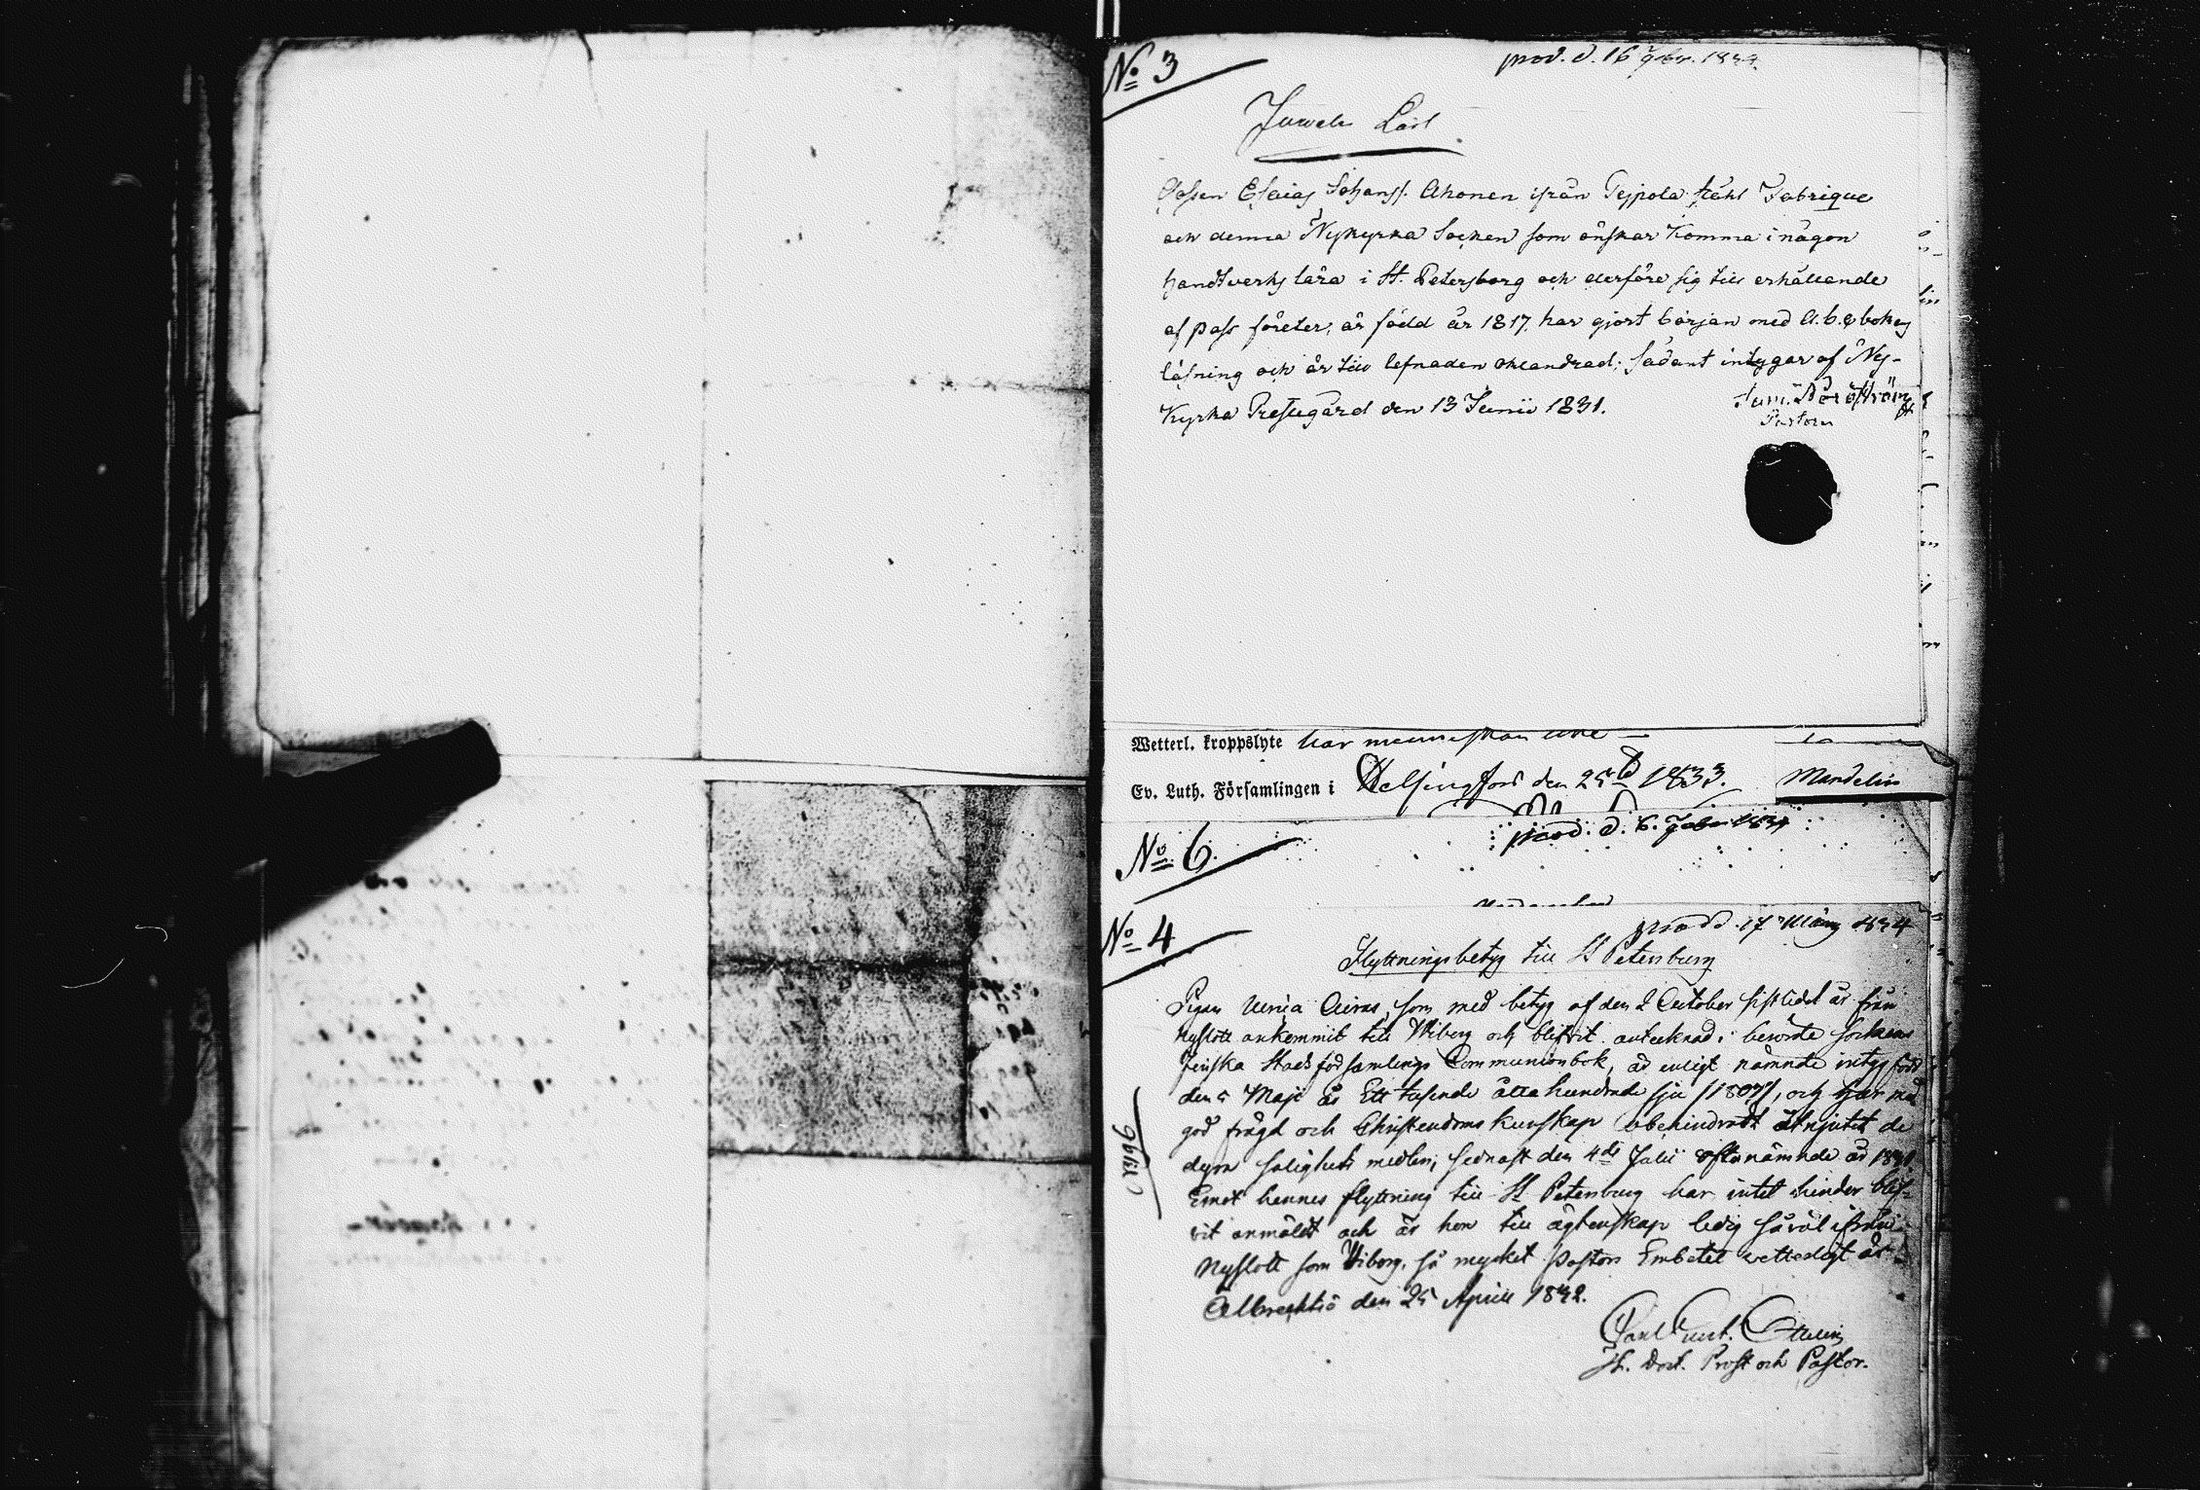 No 3
prod. d. 16 Febr. 1834.
Juvel Lärl
Gossen Esaias Johanss. Ahonen ifrån Tejpola stähl Fabrique
och denna Nykyrka Socken som önskar komma i någon
handtverks lära i St. Petersborg och derföre sig till erhållande
af pass företer, är född år 1817. har gjort början med A.b.c boks
läsning och är till lefnaden oklandrad; sådant intygar af Ny-
Kyrka Prestegård den 13 Junii 1831.
Pastor
Wetterl. kroppslyte har menniskan icke —
Ev. Luth. Församlingen i Helsingfors den 25 1833.
Mandelin
No 6.
prod. d. 6. Febr 1834
No 4
prod d. 17 Mars 1834
Flyttningsbetyg till St Petersburg
Pigan Ulrica Airas, som med betyg af den 2 October sistledit år från
Nyslott ankommit till Wiborg och blifvit antecknad i berörde sockens
Finska Stadsförsamlings Communionbok, är enligt nämnde intyg född
den 5 Maji år Ett tusende åtta hundrade sju /1807/, och har med
god frägd och Christendoms kunskap obehindradt åtnjutit de
dyra salighets medlen, sednast den 4de Julii oftanämnde år 1831.
Emot hennes flyttning till St Petersburg har intet hinder blif-
vit anmäldt och är hon till ägtenskap ledig såväl ifrån
Nyslott som Wiborg, så mycket Pastors Embetet vetterligt är
den 25 April 1832.
Carl Gust.
Th. Doct. Prost och Pastor.